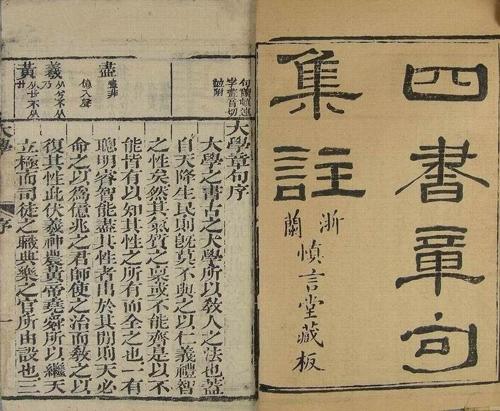 四書章句
集註
浙蘭慎言堂藏板
字畫音切
盡
盡非
億入聲
羲
黃
大學章句序
大學之書古之大學所以敎人之法也蓋
自天降生民則旣莫不與之以仁義禮智
之性矣然其氣質之稟或不能齊是以不
能皆有以知其性之所有而全之也一有
聰明睿智能盡其性者出於其閒則天必
命之以爲億兆之君師使之治而敎之以
復其性此伏羲神農黃帝堯舜所以繼天
立極而司徒之職典樂之官所由設也三
大學 序 一